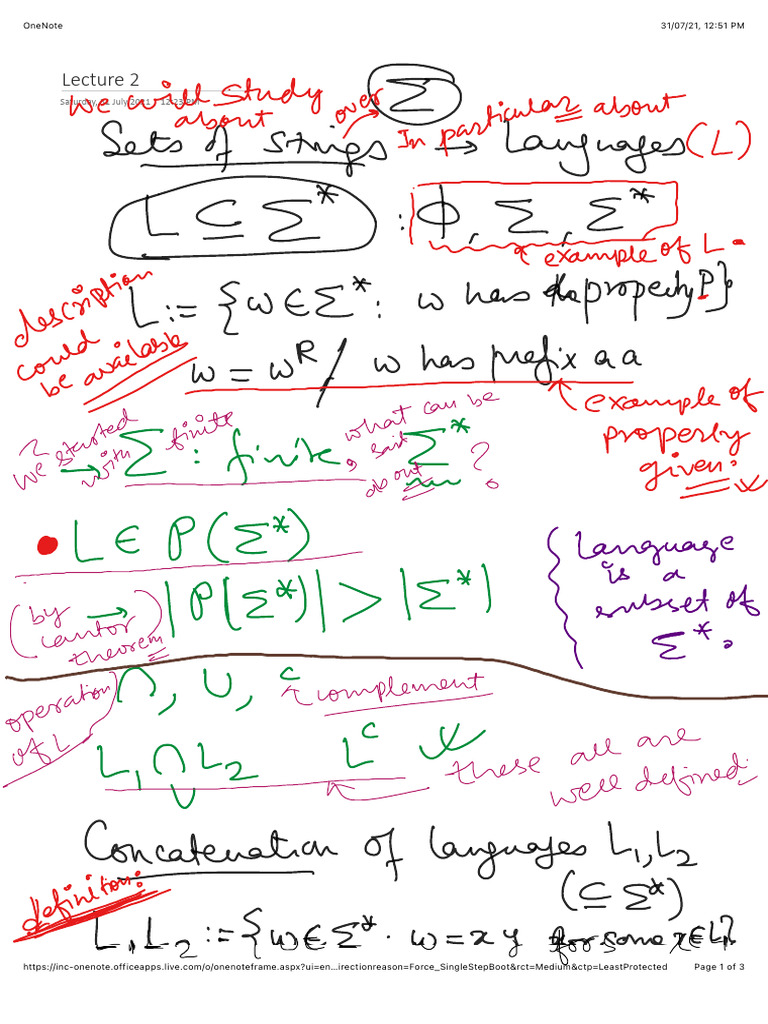 OneNote 31/07/21, 12:51 PM
Lecture 2
Saturday, 31 July 2021 12:23 PM
we will study about
Sets of strings over Σ In particular about → Languages (L)
L ⊆ Σ* : Φ, Σ, Σ*
example of L
description could be available
L := {w ∈ Σ* : w has property P}
w = w^R / w has prefix aa
example of property given:
We started with → Σ : finite finite, what can be said about Σ* ?
L ∈ P(Σ*)
(by Cantor theorem) → |P(Σ*)| > |Σ*|
Language is a subset of Σ*.
operation of L ∩, ∪, c complement
L₁ ∩ L₂ L^c
∪
these all are well defined
Concatenation of languages L₁, L₂
(⊆ Σ*)
definition:
L₁L₂ := {w ∈ Σ* . w = xy for some x ∈ L₁}
https://inc-onenote.officeapps.live.com/o/onenoteframe.aspx?ui=en...irectionreason=Force_SingleStepBoot&rct=Medium&ctp=LeastProtected Page 1 of 3